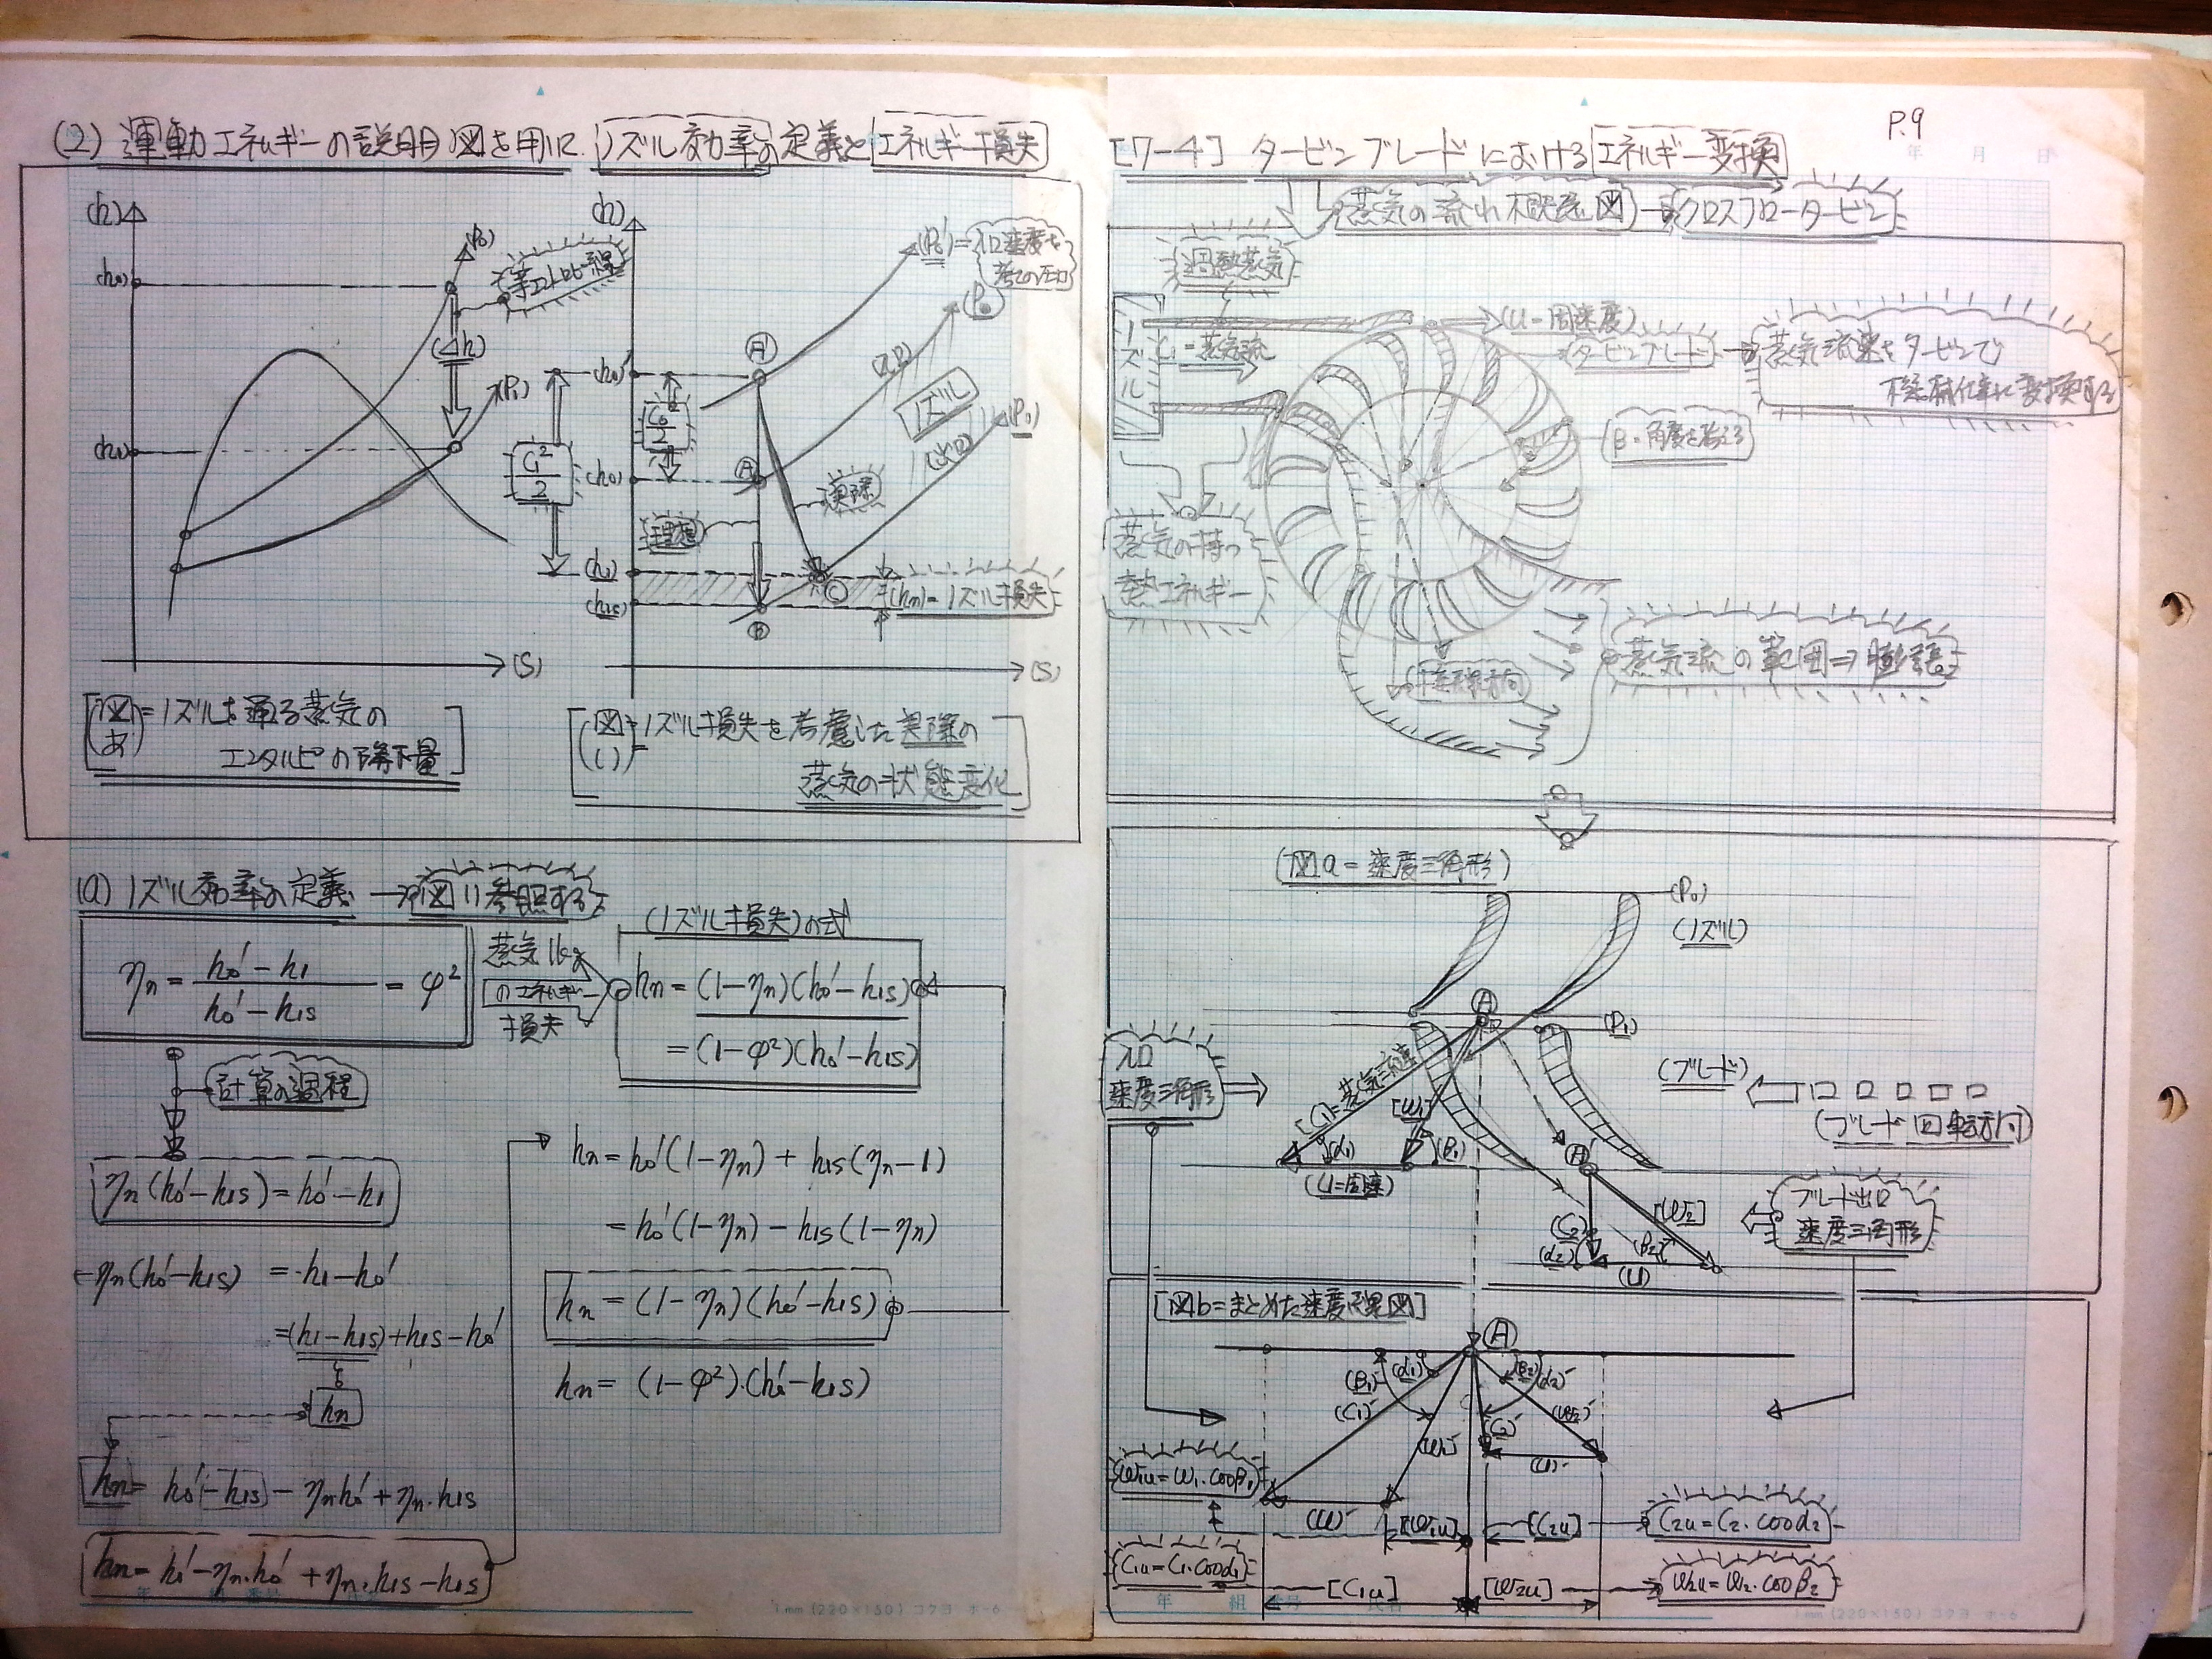 (2) 運動エネルギーの説明図を用に ノズル効率の定義とエネルギー損失
(h)
(h0)
(h1)
(P0)
等エントロピ線
(Δh)
(P1)
(S)
(図あ)=ノズルを通る蒸気の
エンタルピの降下量
(h)
(P0')=入口速度を
考えの圧力
(P0)
(入口)
ノズル
(出口)
(P1)
(h0')
(h0)
(h1)
(h1s)
C1²/2
C0²/2
A'
A
B
C
理想
実際
(hn)=ノズル損失
(S)
(図い)=ノズル損失を考慮した実際の
蒸気の状態変化
(a) ノズル効率の定義 → 図い参照する
ηn = (h0' - h1)/(h0' - h1s) = φ²
蒸気1kg
のエネルギー
損失
(ノズル損失)の式
hn = (1-ηn)(h0'-h1s)
= (1-φ²)(h0'-h1s)
計算の過程
ηn(h0'-h1s) = h0'-h1
-ηn(h0'-h1s) = h1-h0'
=(h1-h1s)+h1s-h0'
hn
hn = h0'-h1s-ηnh0'+ηn・h1s
hn = h0'-ηn・h0'+ηn・h1s-h1s
hn = h0'(1-ηn) + h1s(ηn-1)
= h0'(1-ηn) - h1s(1-ηn)
hn = (1-ηn)(h0'-h1s)
hn = (1-φ²)・(h0'-h1s)
P.9
年 月 日
[7-4] タービンブレードにおけるエネルギー変換
蒸気の流れ概念図 → クロスフロータービン
過熱蒸気
ノズル
C1=蒸気流
(U=周速度)
タービンブレード
蒸気流速をタービンで
機械仕事に変換する
β=角度を考える
蒸気の持つ
熱エネルギー
接線方向
蒸気流の範囲⇒膨張
(図a=速度三角形)
(P0)
(ノズル)
A
(P1)
入口
速度三角形
[C1=蒸気流速]
[W1]
(α1)
(β1)
(U=周速)
(ブレード)
(ブレード回転方向)
A'
(C2)
(α2)
[W2]
(β2)
(U)
ブレード出口
速度三角形
[図b=まとめた速度線図]
A
(β1)
(α1)
(C1)
(W1)
(β2)
(α2)
(C2)
(W2)
(U)
W1u=W1・cosβ1
(U)
[W1u]
[C2u]
C2u=C2・cosα2
C1u=C1・cosα1
[C1u]
[W2u]
W2u=W2・cosβ2
1mm(220×150)コクヨ ホ-6
年 組 番号 氏名
1mm(220×150)コクヨ ホ-6